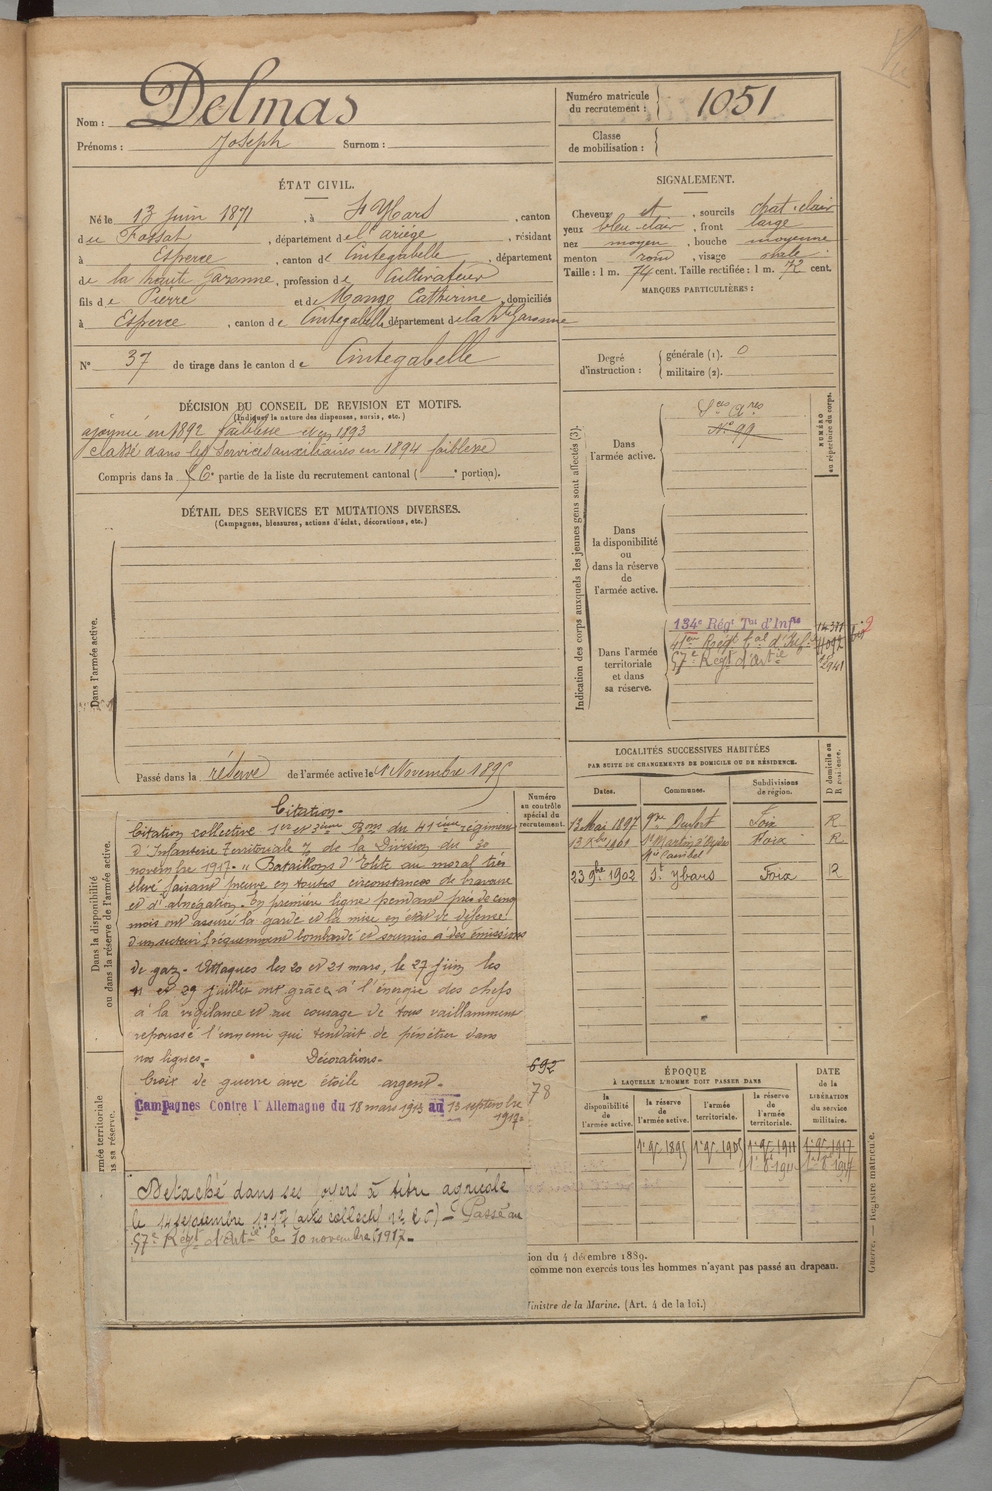 Nom : Delmas
Prénoms : Joseph Surnom :
Numéro matricule
du recrutement : 1051
Classe
de mobilisation :
ÉTAT CIVIL.
Né le 13 juin 1871, à St Ybars, canton
du Fossat, département de l'ariége, résidant
à Esperce, canton de Cintegabelle, département
de la haute garonne, profession de Cultivateur
fils de Pierre et de Mange Catherine, domiciliés
à Esperce, canton de Cintegabelle département de la hte Garonne
N° 37 de tirage dans le canton de Cintegabelle
SIGNALEMENT.
Cheveux et, sourcils chat. clair
yeux bleu clair, front large
nez moyen, bouche moyenne
menton rond, visage ovale
Taille : 1 m. 74 cent. Taille rectifiée : 1 m. 72 cent.
MARQUES PARTICULIÈRES :
Degré
d'instruction :
générale (1). 0
militaire (2).
DÉCISION DU CONSEIL DE REVISION ET MOTIFS.
(Indiquer la nature des dispenses, sursis, etc.)
ajourné en 1892 faiblesse et en 1893
classé dans les services auxiliaires en 1894 faiblesse
Compris dans la 6e partie de la liste du recrutement cantonal ( e portion).
DÉTAIL DES SERVICES ET MUTATIONS DIVERSES.
(Campagnes, blessures, actions d'éclat, décorations, etc.)
Dans l'armée active.
Passé dans la réserve de l'armée active le 1 Novembre 1895
Indication des corps auxquels les jeunes gens sont affectés (3).
NUMÉRO
au répertoire du corps.
Dans
l'armée active.
Sces Ares
N° 99
Dans
la disponibilité
ou
dans la réserve
de
l'armée active.
Dans l'armée
territoriale
et dans
sa réserve.
134e Régt Tal d'Infie
41eme Régt tal d'Inf.
57e Regt d'Artie
LOCALITÉS SUCCESSIVES HABITÉES
PAR SUITE DE CHANGEMENTS DE DOMICILE OU DE RÉSIDENCE.
Dates. Communes. Subdivisions
de région. D domicile ou
R résidence.
13 Mai 1897 Durfort Foix R
1901 St Martin d'Oydes Foix R
23 9bre 1902 St Ybars Foix R
Dans la disponibilité
ou dans la réserve de l'armée active.
Numéro
au contrôle
spécial du
recrutement.
Citation.
Citation collective 1er et 3ème Bons du 41ème régiment
d'Infanterie Territoriale de la Division du 30
novembre 1917. " Bataillons d'Elite au moral très
élevé faisant preuve en toutes circonstances de bravoure
et d'abnégation. En première ligne pendant près de cinq
mois ont assuré la garde et la mise en état de défense
d'un secteur fréquemment bombardé et soumis à des émissions
de gaz. Attaqués les 20 et 21 mars, le 27 juin les
11 et 29 juillet ont grâce à l'énergie des chefs
à la vigilance et au courage de tous vaillamment
repoussé l'ennemi qui tendait de pénétrer dans
nos lignes.
Décorations.
Croix de guerre avec étoile argent.
Campagnes Contre l'Allemagne du 18 mars 1913 au 13 septembre
1917.
692
78
rmée territoriale
ns sa réserve.
Détaché dans ses foyers à titre agricole
le 14 septembre 1917 Passé au
57e Régt d'Artie le 10 novembre 1917.
ÉPOQUE
À LAQUELLE L'HOMME DOIT PASSER DANS
la
disponibilité
de
l'armée active.
la réserve
de
l'armée active.
l'armée
territoriale.
la réserve
de
l'armée
territoriale.
DATE
de la
LIBÉRATION
du service
militaire.
1er 9bre 1895 1er 9bre 1905 1er 9bre 1911 1er 9bre 1917
ion du 4 décembre 1889.
comme non exercés tous les hommes n'ayant pas passé au drapeau.
inistre de la Marine. (Art. 4 de la loi.)
Guerre. — Registre matricule.